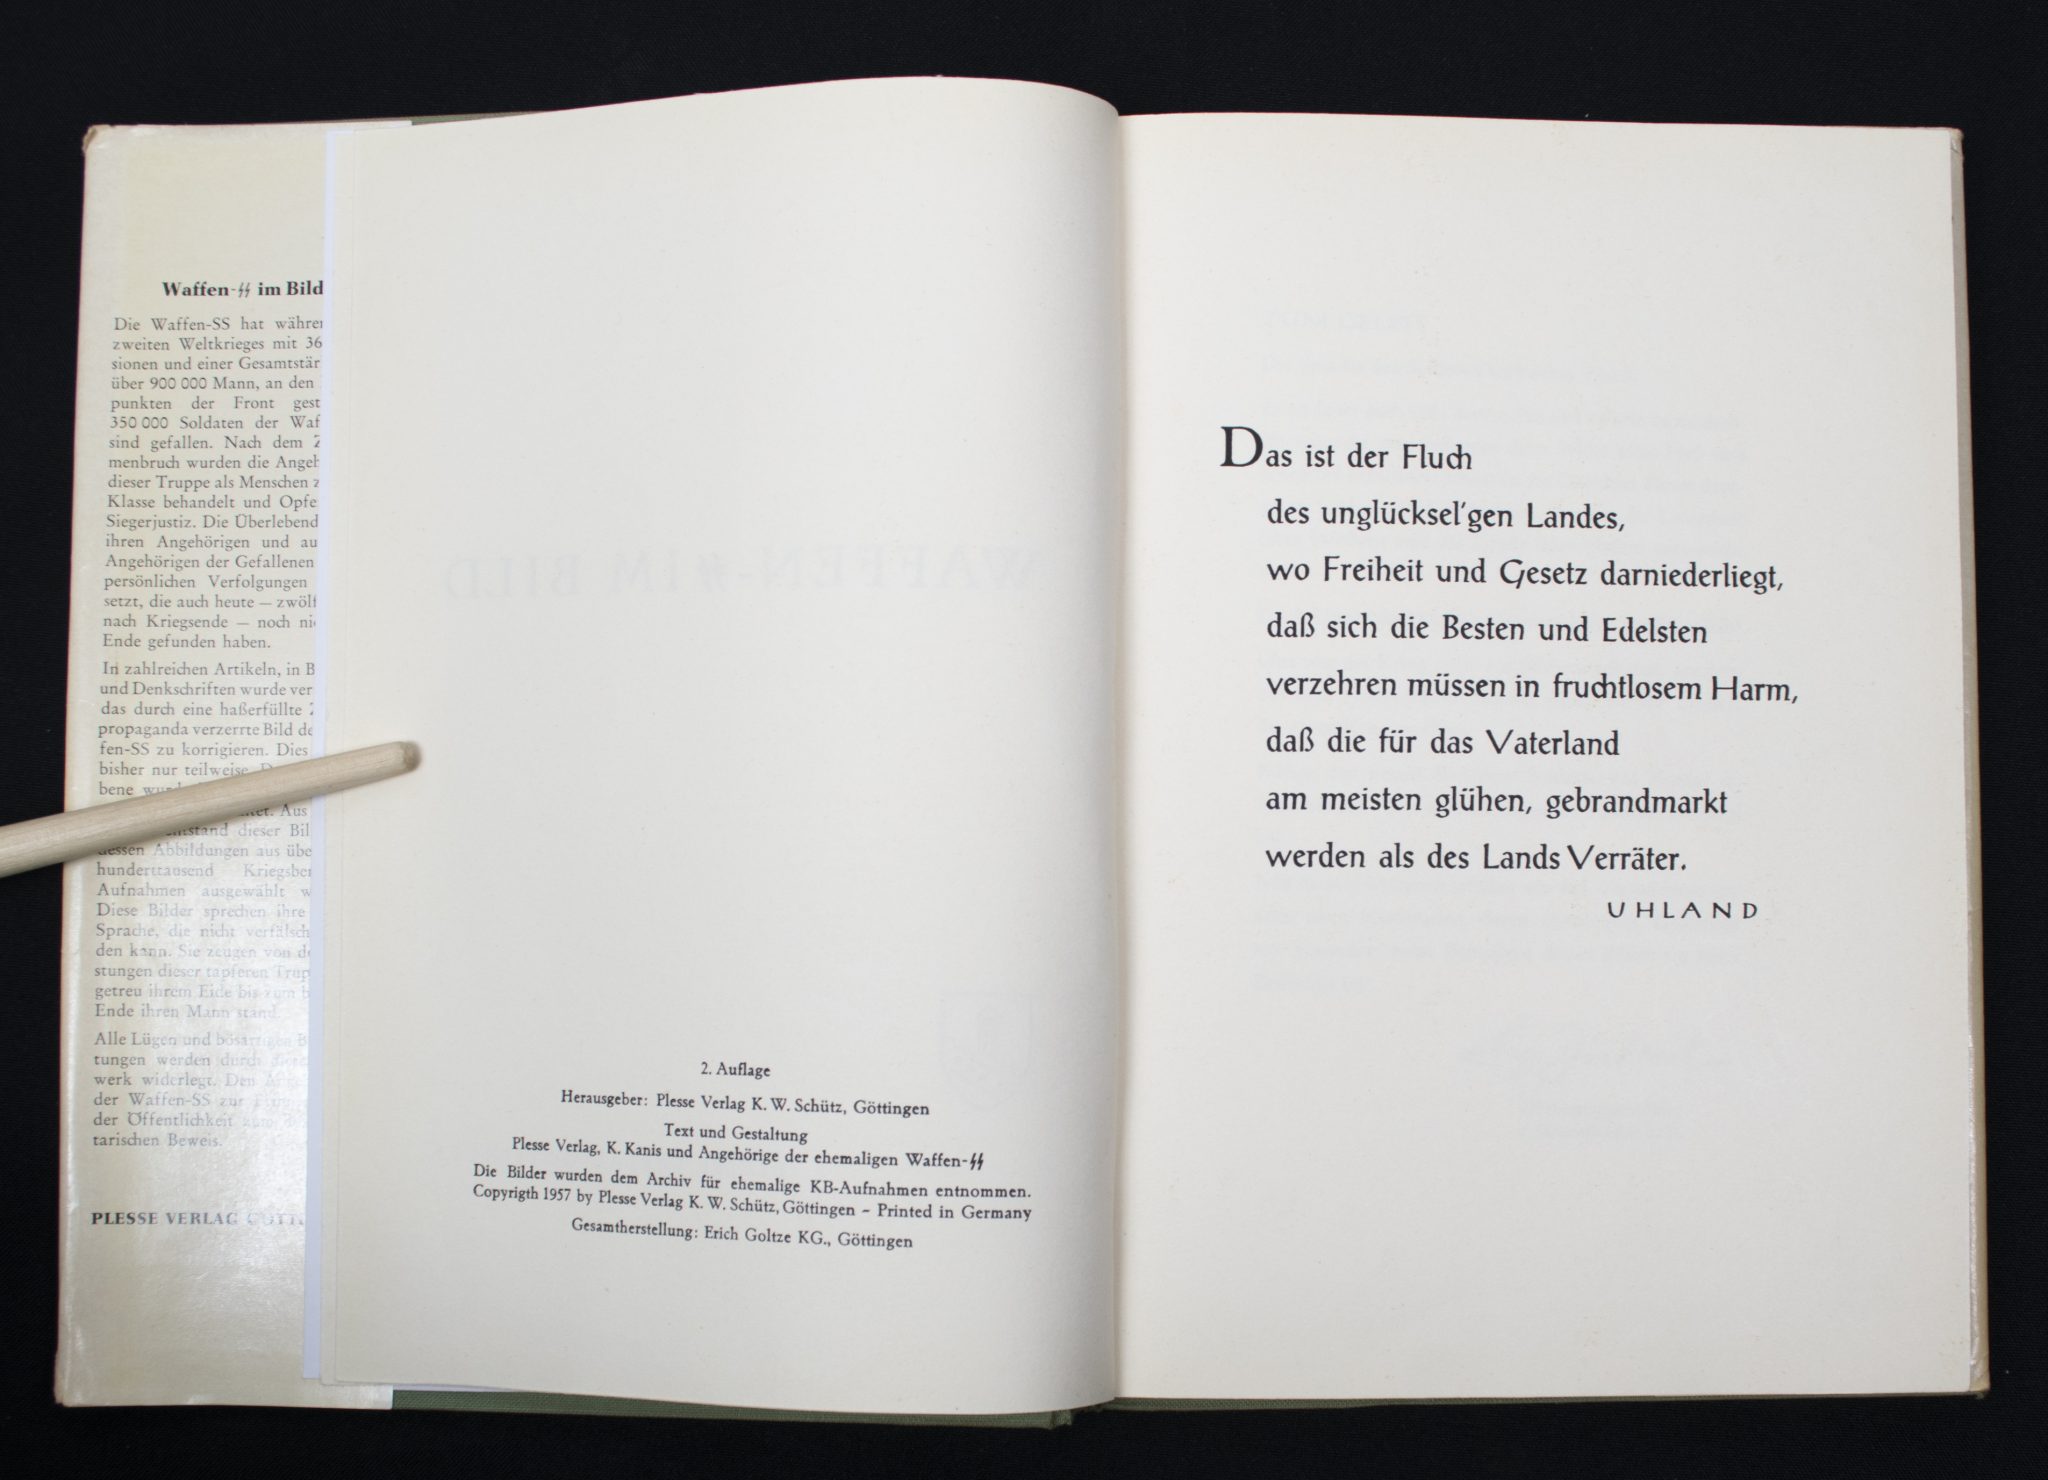 Waffen-SS im Bild
Die Waffen-SS hat währe
zweiten Weltkrieges mit 36
sionen und einer Gesamtstär
über 900 000 Mann, an den
punkten der Front gest
350 000 Soldaten der Waf
sind gefallen. Nach dem Z
menbruch wurden die Angeh
dieser Truppe als Menschen z
Klasse behandelt und Opfe
Siegerjustiz. Die Überlebend
ihren Angehörigen und au
Angehörigen der Gefallenen
persönlichen Verfolgungen
setzt, die auch heute — zwölf
nach Kriegsende — noch ni
Ende gefunden haben.
In zahlreichen Artikeln, in B
und Denkschriften wurde ver
das durch eine haßerfüllte Z
propaganda verzerrte Bild de
fen-SS zu korrigieren. Dies
bisher nur teilweise.
bene
Aus
entstand dieser Bil
dessen Abbildungen aus übe
hunderttausend Kriegsber
Aufnahmen ausgewählt w
Diese Bilder sprechen ihre
Sprache, die nicht verfälsch
den kann. Sie zeugen von de
stungen dieser tapferen Trup
getreu ihrem Eide bis zum b
Ende ihren Mann stand.
Alle Lügen und bösartigen B
tungen werden durch
werk widerlegt. Den
der Waffen-SS zur
der Öffentlichkeit zum
tarischen Beweis.
PLESSE VERLAG GÖTT
2. Auflage
Herausgeber: Plesse Verlag K. W. Schütz, Göttingen
Text und Gestaltung
Plesse Verlag, K. Kanis und Angehörige der ehemaligen Waffen-SS
Die Bilder wurden dem Archiv für ehemalige KB-Aufnahmen entnommen.
Copyrigth 1957 by Plesse Verlag K. W. Schütz, Göttingen – Printed in Germany
Gesamtherstellung: Erich Goltze KG., Göttingen
Das ist der Fluch
des unglücksel'gen Landes,
wo Freiheit und Gesetz darniederliegt,
daß sich die Besten und Edelsten
verzehren müssen in fruchtlosem Harm,
daß die für das Vaterland
am meisten glühen, gebrandmarkt
werden als des Lands Verräter.
UHLAND